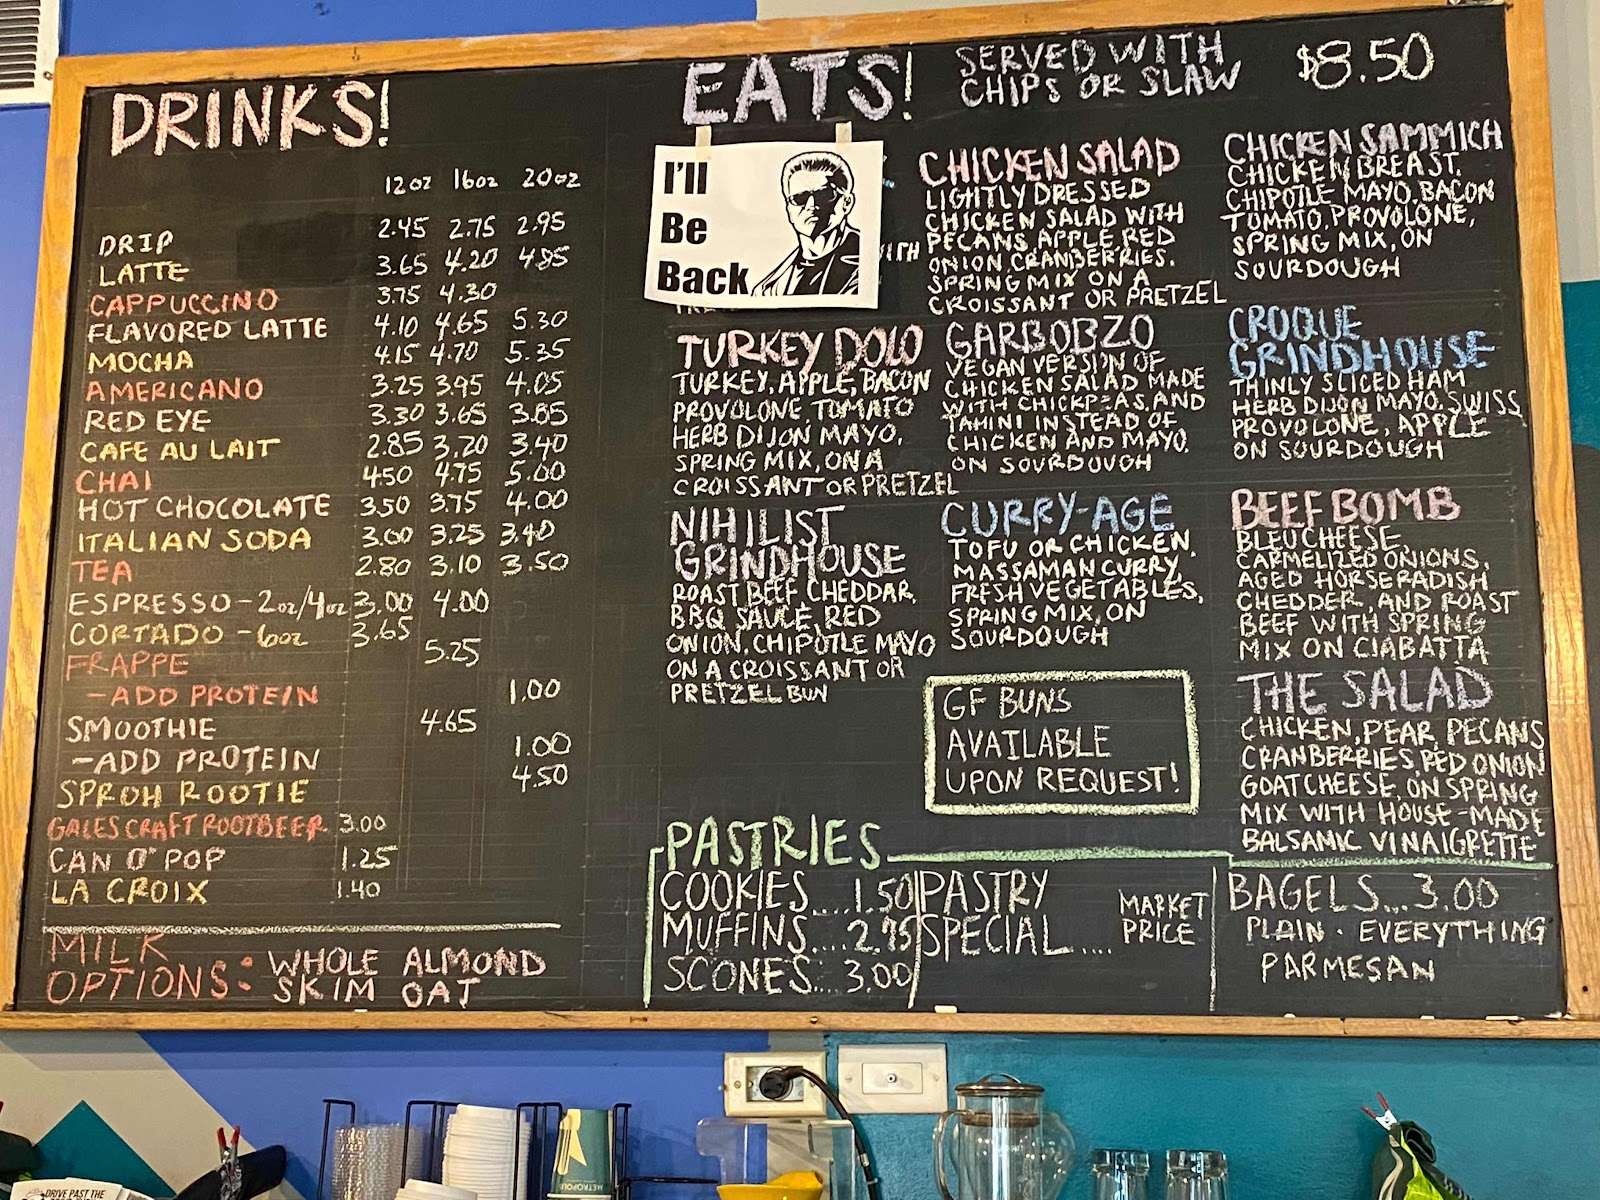 DRINKS!
12oz 16oz 20oz
DRIP 2.45 2.75 2.95
LATTE 3.65 4.20 4.85
CAPPUCCINO 3.75 4.30
FLAVORED LATTE 4.10 4.65 5.30
MOCHA 4.15 4.70 5.35
AMERICANO 3.25 3.95 4.05
RED EYE 3.30 3.65 3.85
CAFE AU LAIT 2.85 3.20 3.40
CHAI 4.50 4.75 5.00
HOT CHOCOLATE 3.50 3.75 4.00
ITALIAN SODA 3.00 3.25 3.40
TEA 2.80 3.10 3.50
ESPRESSO - 2oz/4oz 3.00 4.00
CORTADO - 6oz 3.65
FRAPPE 5.25
- ADD PROTEIN 1.00
SMOOTHIE 4.65
- ADD PROTEIN 1.00
SPROH ROOTIE 4.50
GALES CRAFT ROOTBEER 3.00
CAN O' POP 1.25
LA CROIX 1.40
MILK
OPTIONS: WHOLE ALMOND
SKIM OAT
EATS!
SERVED WITH
CHIPS OR SLAW
$8.50
I'll
Be
Back
TURKEY DOLO
TURKEY, APPLE, BACON
PROVOLONE TOMATO
HERB DIJON MAYO,
SPRING MIX, ON A
CROISSANT OR PRETZEL
NIHILIST
GRINDHOUSE
ROAST BEEF CHEDDAR,
BBQ SAUCE, RED
ONION, CHIPOTLE MAYO
ON A CROISSANT OR
PRETZEL BUN
CHICKEN SALAD
LIGHTLY DRESSED
CHICKEN SALAD WITH
PECANS, APPLE, RED
ONION, CRANBERRIES.
SPRING MIX ON A
CROISSANT OR PRETZEL
GARBOBZO
VEGAN VERSION OF
CHICKEN SALAD MADE
WITH CHICKPEAS AND
TAHINI INSTEAD OF
CHICKEN AND MAYO.
ON SOURDOUGH
CURRY-AGE
TOFU OR CHICKEN.
MASSAMAN CURRY,
FRESH VEGETABLES,
SPRING MIX, ON
SOURDOUGH
GF BUNS
AVAILABLE
UPON REQUEST!
CHICKEN SAMMICH
CHICKEN BREAST.
CHIPOTLE MAYO, BACON
TOMATO, PROVOLONE,
SPRING MIX, ON
SOURDOUGH
CROQUE
GRINDHOUSE
THINLY SLICED HAM
HERB DIJON MAYO, SWISS
PROVOLONE, APPLE
ON SOURDOUGH
BEEF BOMB
BLEU CHEESE
CARMELIZED ONIONS,
AGED HORSERADISH
CHEDDER, AND ROAST
BEEF WITH SPRING
MIX ON CIABATTA
THE SALAD
CHICKEN, PEAR PECANS
CRANBERRIES, RED ONION
GOAT CHEESE, ON SPRING
MIX WITH HOUSE-MADE
BALSAMIC VINAIGRETTE
PASTRIES
COOKIES....1.50
MUFFINS....2.75
SCONES....3.00
PASTRY
SPECIAL.... MARKET PRICE
BAGELS...3.00
PLAIN · EVERYTHING
PARMESAN
DRIVE PAST THE